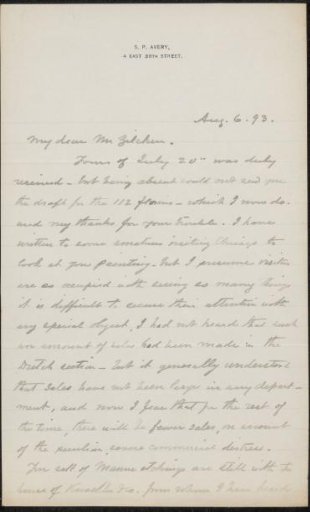 S. P. AVERY,
4 EAST 38TH STREET.
Aug. 6. 93.
My dear Mr Zilcken.
Yours of July 20" was duly
received - but being absent could not send you
the draft for the 112 florins - which I now do.
and my thanks for your trouble. I have
written to some amateurs visiting Chicago to
look at your painting. but I presume visitors
are so occupied with seeing so many things
it is difficult to secure their attention with
any special object, I had not heard that such
an amount of sales had been made in the
Dutch section - but it generally understood
that sales have not been large in any depart-
ment, and now I fear that for the rest of
the time, there will be fewer sales, on account
of the peculiar, severe commercial distress.
The sett of Mauve etchings are still with the
house of & Co. from whom I have heard